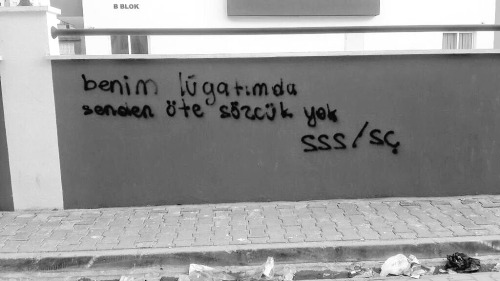 B BLOK
benim lûgatımda
senden öte sözcük yok
SSS/SÇ